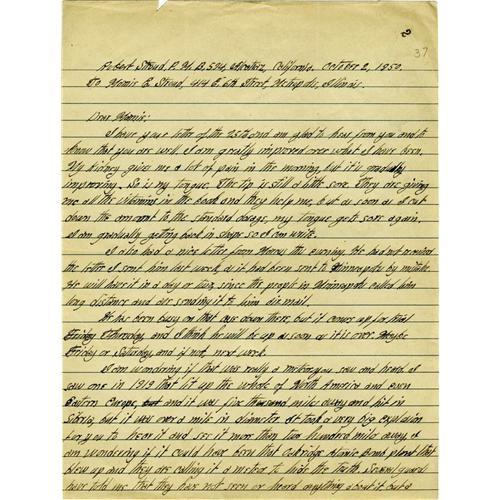 2
37
Robert Stroud, P. M. B. 594, Alcatraz, California. October 2, 1950.
To Mamie E. Stroud, 414 E. 6th Street, Metropolis, Illinois.
Dear Mamie:
I have your letter of the 25th and am glad to hear from you and to
know that you are well. I am greatly improved over what I have been.
My kidney gives me a lot of pain in the morning, but it is gradually
improving. So is my tongue. The tip is still a little sore. They are giving
me all the vitamins in the book and they help me, but as soon as I cut
down the amount to the standard dosage, my tongue gets sore again.
I am gradually getting back in shape so I can write.
I also had a nice letter from Marcus this evening. He had not received
the letter I sent him last week, as it had been sent to Minneapolis by mistake.
He will have it in a day or two, since the people in Minneapolis called him
long distance and are sending it to him air mail.
He has been busy on that case down there, but it comes up for trial
Friday Thursday and I think he will be up as soon as it is over. Maybe
Friday or Saturday and if not, next week.
I am wondering if that was really a meteor you saw and heard. I
saw one in 1913 that lit up the whole of North America and even
Eastern Europe, but and it was five thousand miles away and hit in
Siberia, but it was over a mile in diameter. It took a very big explosion
for you to hear it and see it more than two hundred miles away. I
am wondering if it could have been that Oakridge Atomic Bomb plant that
blew up and they are calling it a meteor to hide the truth. Several guards
have told me that they have not seen or heard anything about it, but a